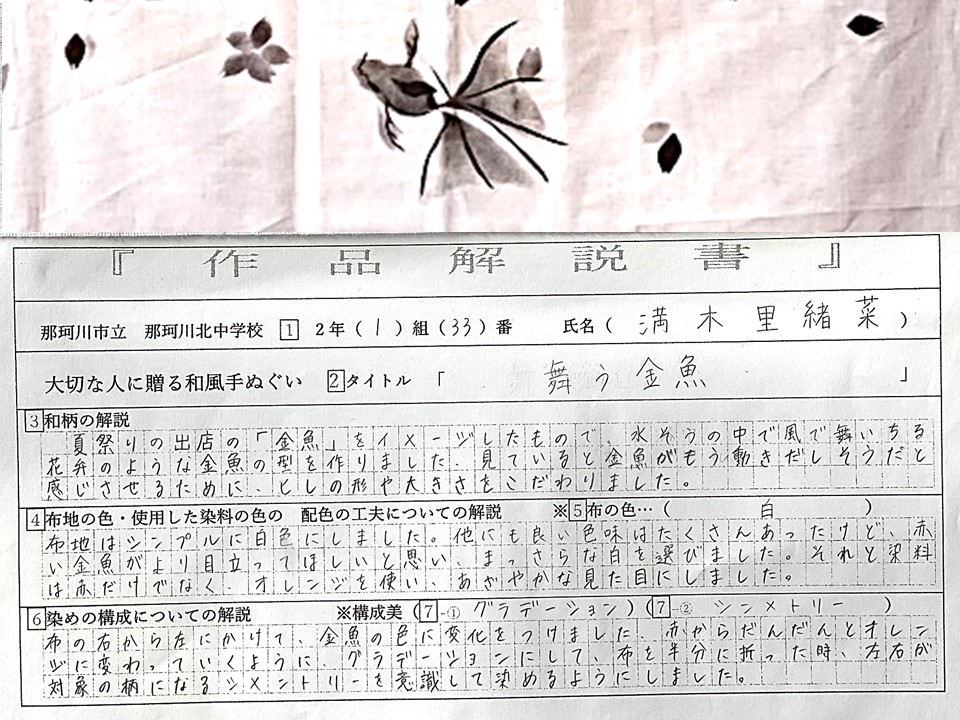 『作品解説書』
那珂川市立 那珂川北中学校 1 2年(1)組(33)番 氏名(満木里緒菜)
大切な人に贈る和風手ぬぐい 2タイトル「舞う金魚」
3和柄の解説
夏祭りの出店の「金魚」をイメージしたもので、水そうの中で風で舞いちる
花弁のような金魚の型を作りました。見ていると金魚がもう動きだしそうだと
感じさせるために、としの形や大きさをこだわりました。
4布地の色・使用した染料の色の 配色の工夫についての解説 ※5布の色…(白)
布地はシンプルに白色にしました。他にも良い色味はたくさんあったけど、赤
い金魚がより目立ってほしいと思い、まっさらな白を選びました。それと染料
は赤だけでなく、オレンジを使い、あざやかな見た目にしました。
6染めの構成についての解説 ※構成美(7-① グラデーション)(7-② シンメトリー)
布の右から左にかけて、金魚の色に変化をつけました。赤からだんだんとオレン
ジに変わっていくように、グラデーションにして、布を半分に折った時、左右が
対象の柄になるシメントリーを意識して染めるようにしました。